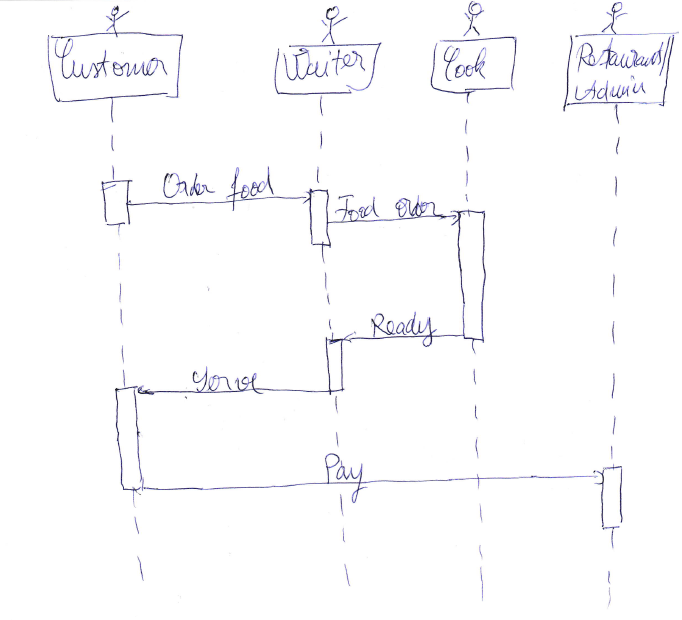 Customer
Waiter
Cook
Restaurant/
Admin
Order food
Food order
Ready
Serve
Pay